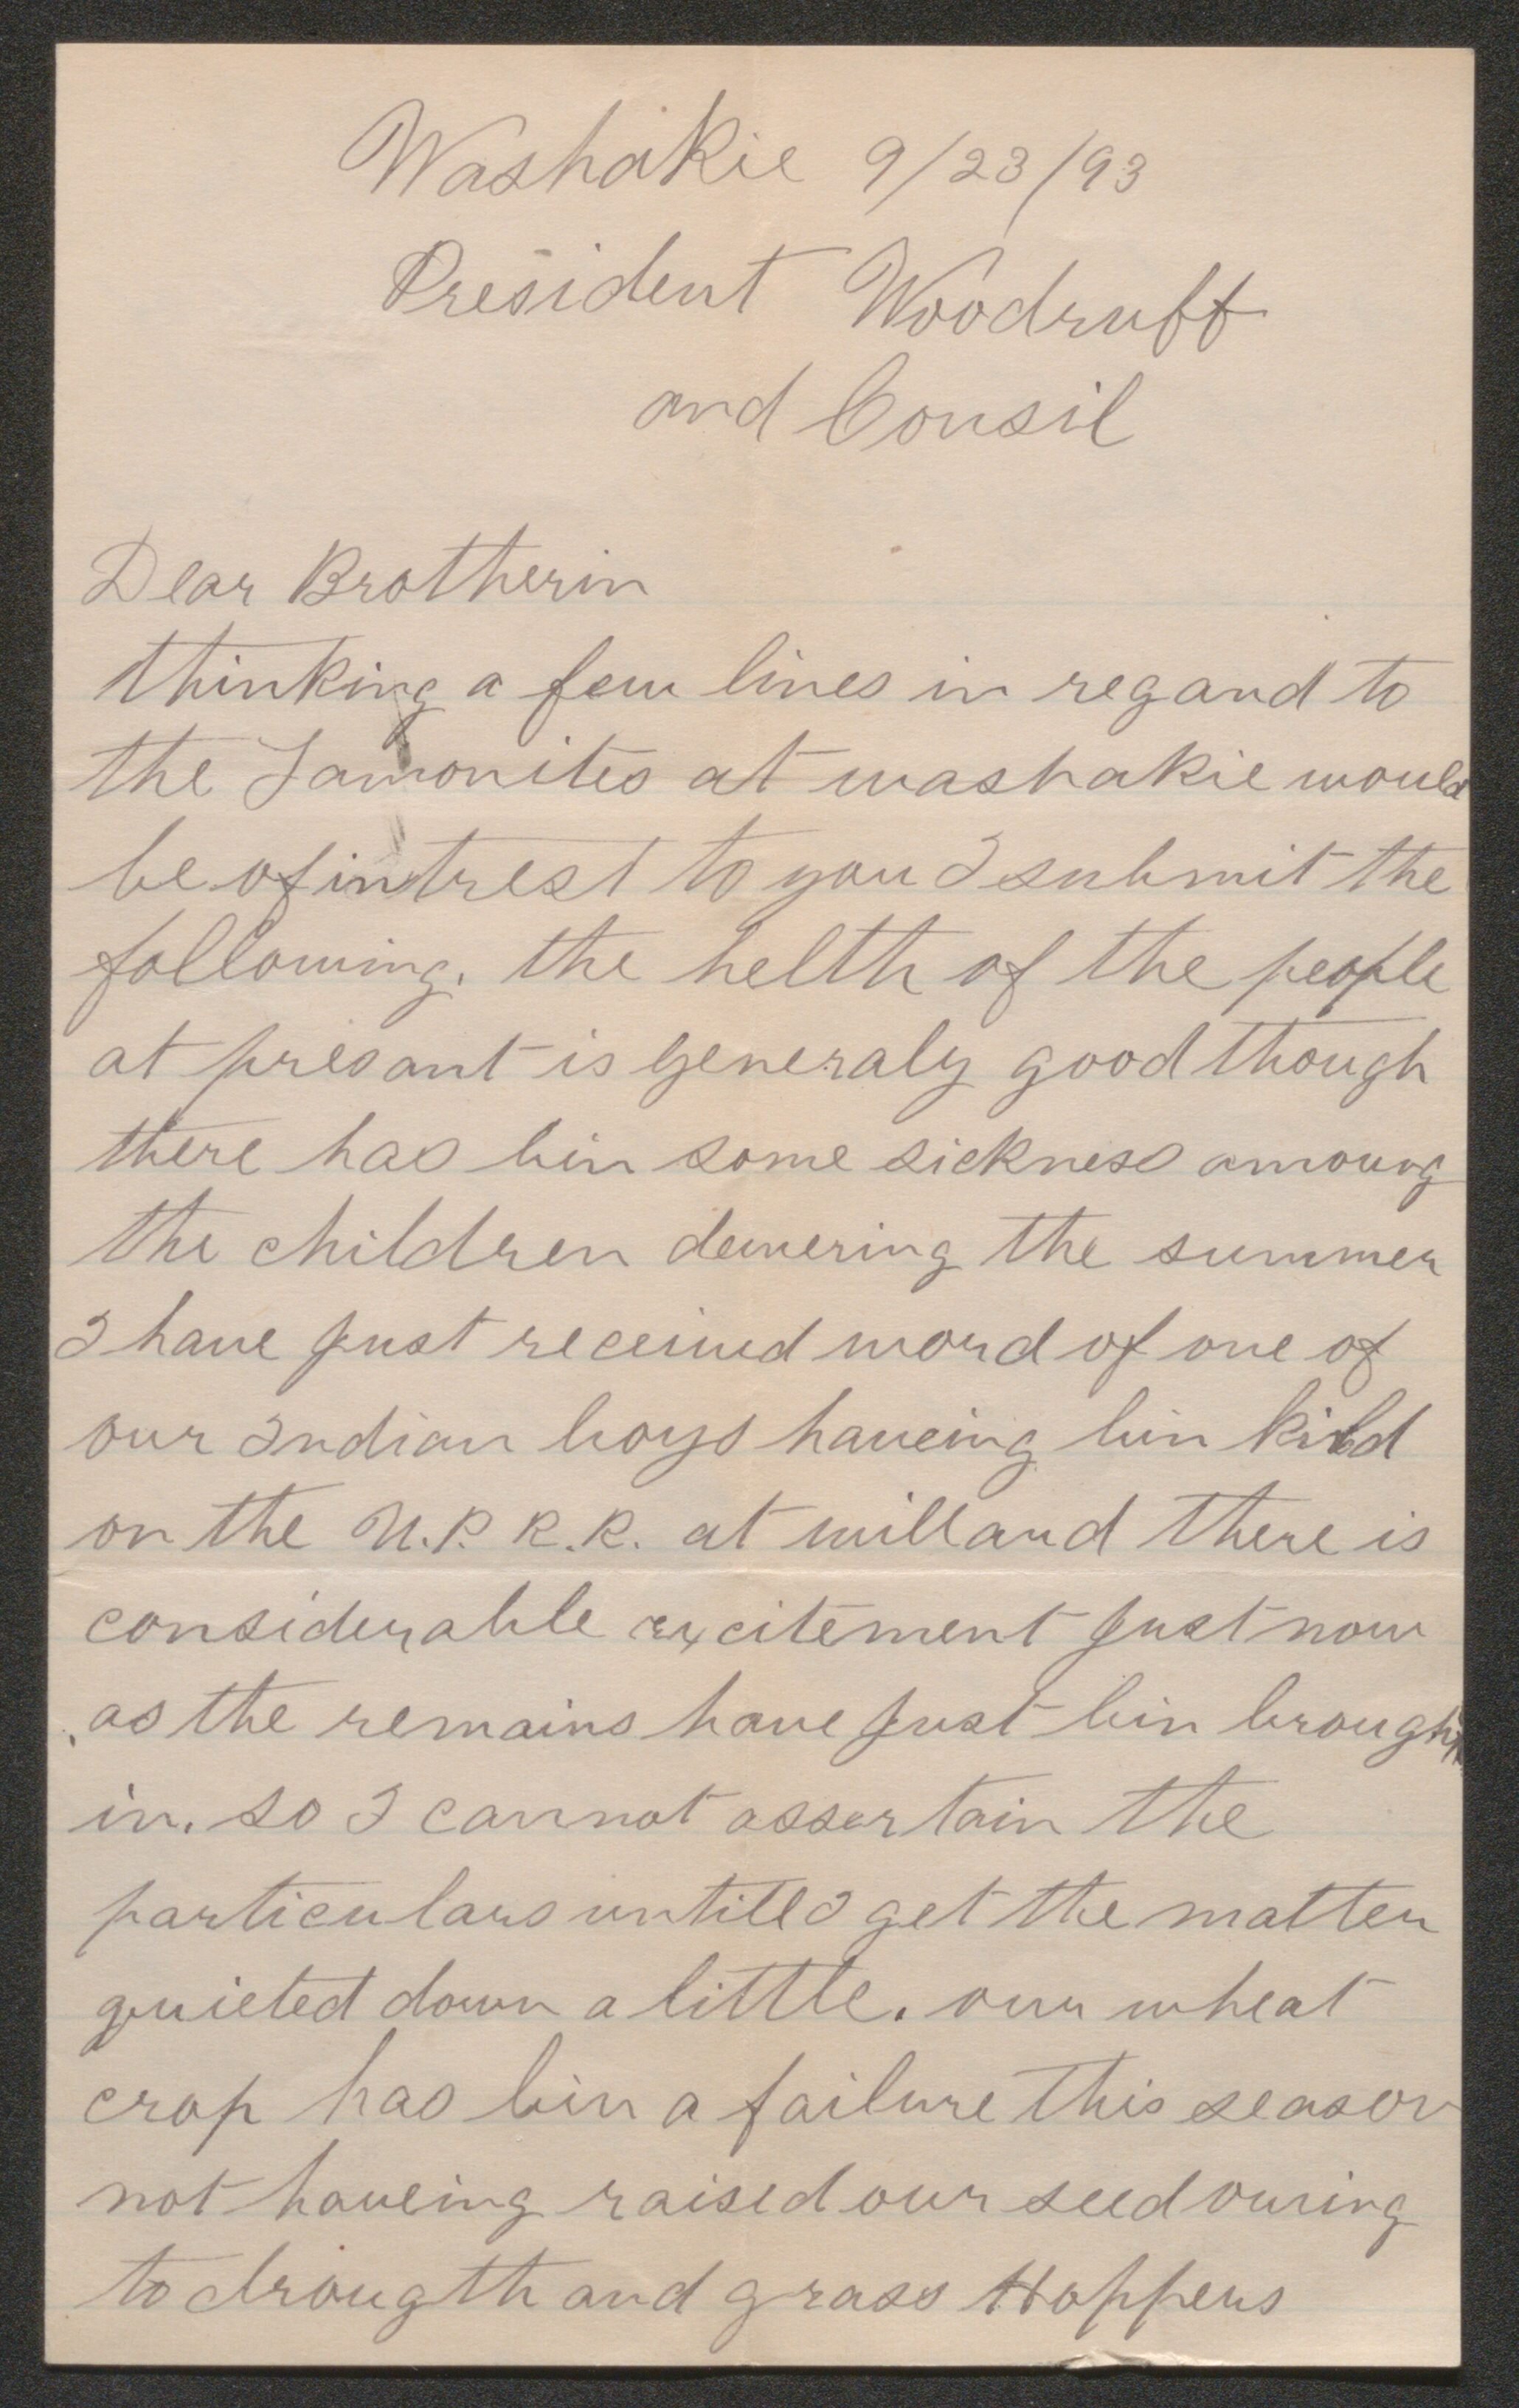 Washakie 9/23/93
President Woodruff
and Consil
Dear Brotherin
thinking a few lines in regard to
the Lamonites at washakie would
be of intrest to you I submit the
following. the helth of the people
at presant is generaly good though
there has bin some sickness amoung
the children duering the summer
I have just received word of one of
our Indian boys haveing bin kild
on the U.P. R.R. at willard there is
considerable excitement just now
as the remains have just bin brought
in. so I cannot assertain the
particulars untill I get the matter
quieted down a little. our wheat
crop has bin a failure this season
not haveing raised our seed owing
to drougth and grass Hoppers